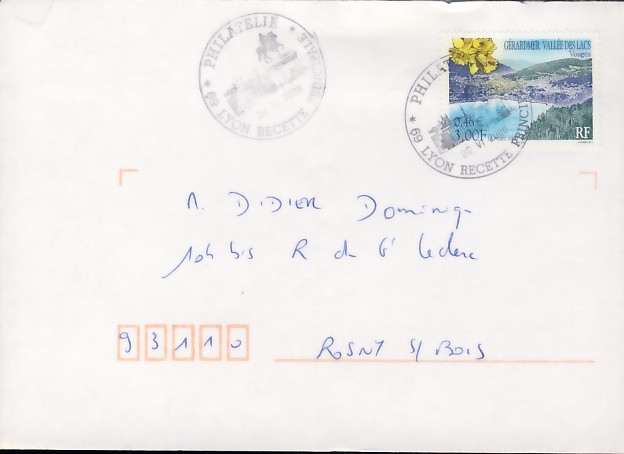 PHILATELIE
69 LYON RECETTE PRINCIPALE
GÉRARDMER VALLÉE DES LACS
Vosges
0,46€
3,00F
RF
69 LYON RECETTE PRINCIPALE
M. DIDIER Dominiq
104 bis R du Gl Leclerc
93110
ROSNY S/ BOIS